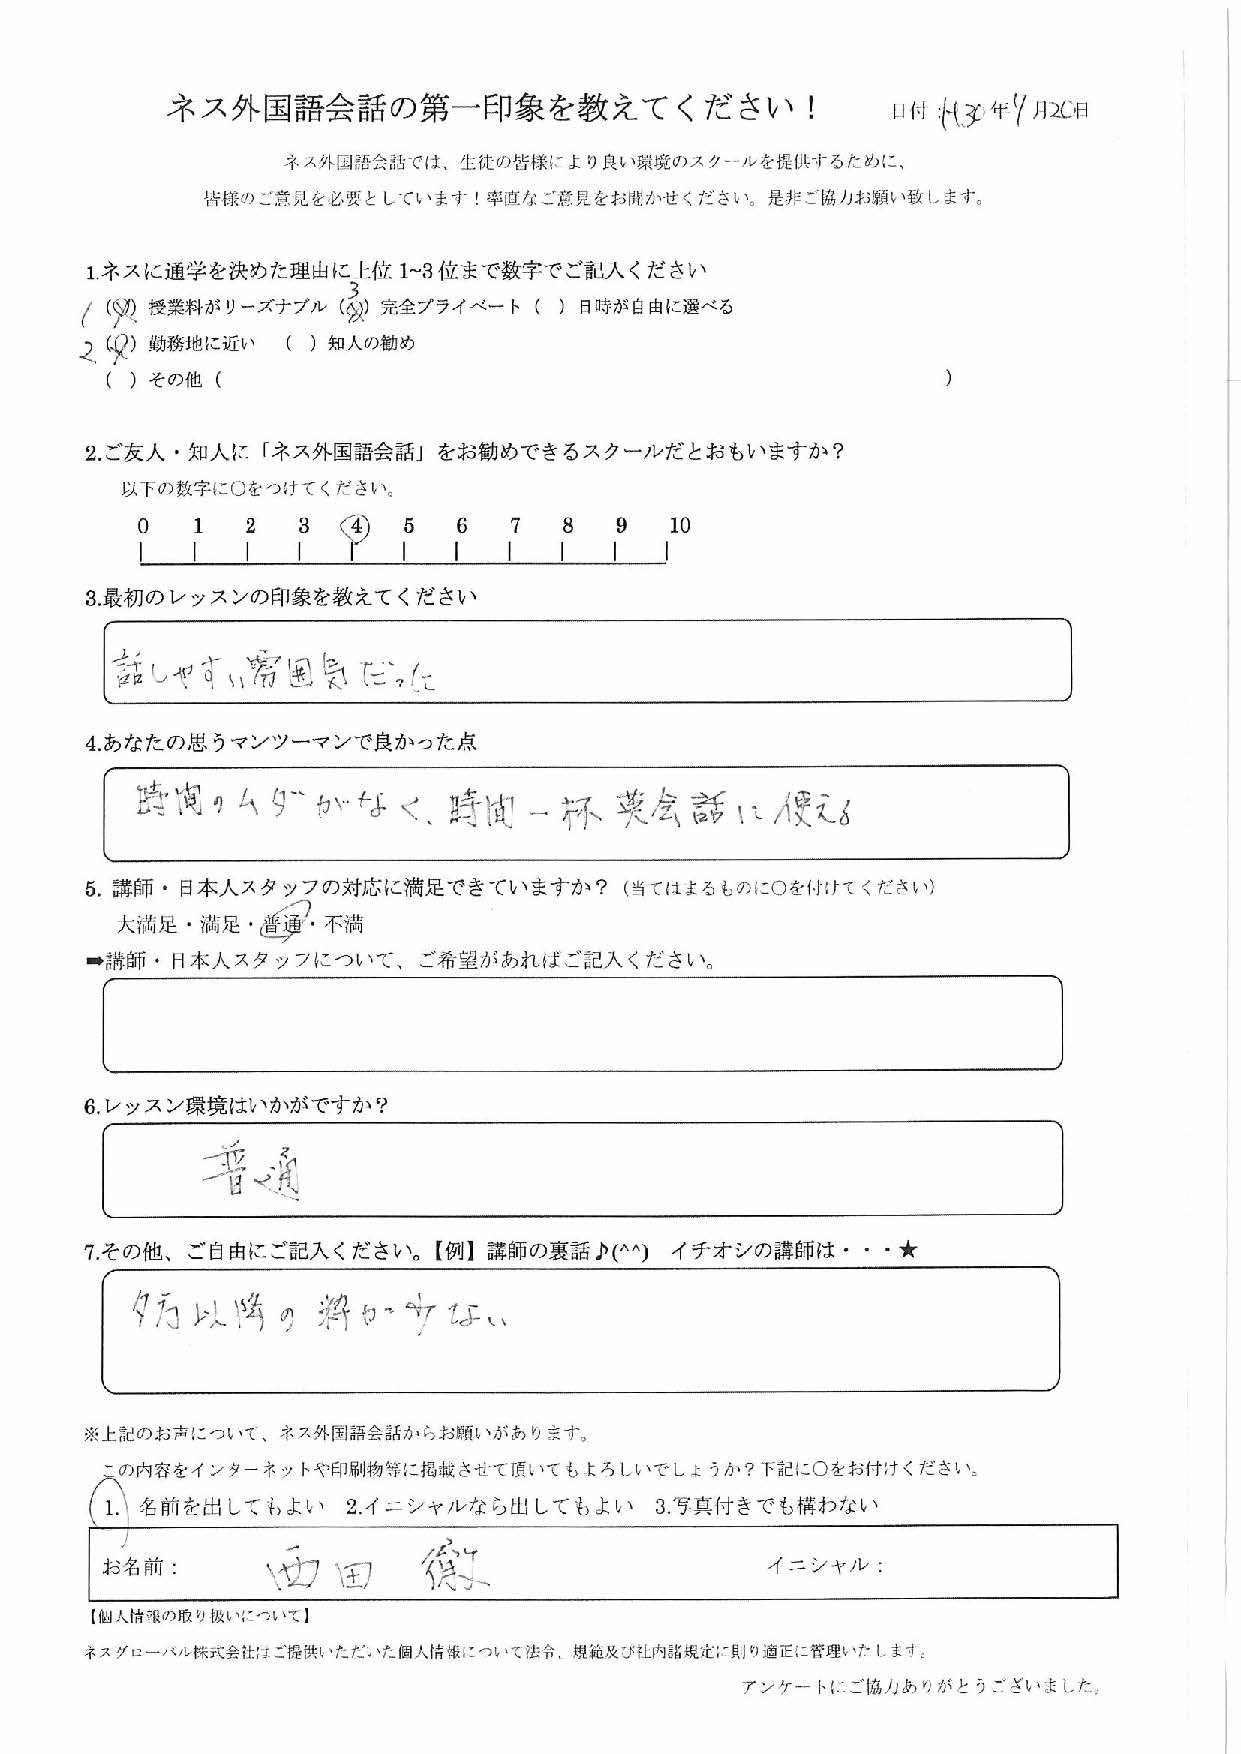 ネス外国語会話の第一印象を教えてください！ 日付：H30年4月20日
ネス外国語会話では、生徒の皆様により良い環境のスクールを提供するために、
皆様のご意見を必要としています！率直なご意見をお聞かせください。是非ご協力お願い致します。
1.ネスに通学を決めた理由に上位1~3位まで数字でご記入ください
1 （ ）授業料がリーズナブル（3）完全プライベート（ ）日時が自由に選べる
2 （ ）勤務地に近い （ ）知人の勧め
（ ）その他（ ）
2.ご友人・知人に「ネス外国語会話」をお勧めできるスクールだとおもいますか？
以下の数字に〇をつけてください。
0 1 2 3 4 5 6 7 8 9 10
3.最初のレッスンの印象を教えてください
話しやすい雰囲気だった
4.あなたの思うマンツーマンで良かった点
時間のムダがなく、時間一杯英会話に使える
5. 講師・日本人スタッフの対応に満足できていますか？（当てはまるものに〇を付けてください）
大満足・満足・普通・不満
➡講師・日本人スタッフについて、ご希望があればご記入ください。
6.レッスン環境はいかがですか？
普通
7.その他、ご自由にご記入ください。【例】講師の裏話♪(^^) イチオシの講師は・・・★
夕方以降の枠が少ない
※上記のお声について、ネス外国語会話からお願いがあります。
この内容をインターネットや印刷物等に掲載させて頂いてもよろしいでしょうか？下記に〇をお付けください。
1. 名前を出してもよい 2.イニシャルなら出してもよい 3.写真付きでも構わない
お名前： 西田 徹 イニシャル：
【個人情報の取り扱いについて】
ネスグローバル株式会社はご提供いただいた個人情報について法令、規範及び社内諸規定に則り適正に管理いたします。
アンケートにご協力ありがとうございました。